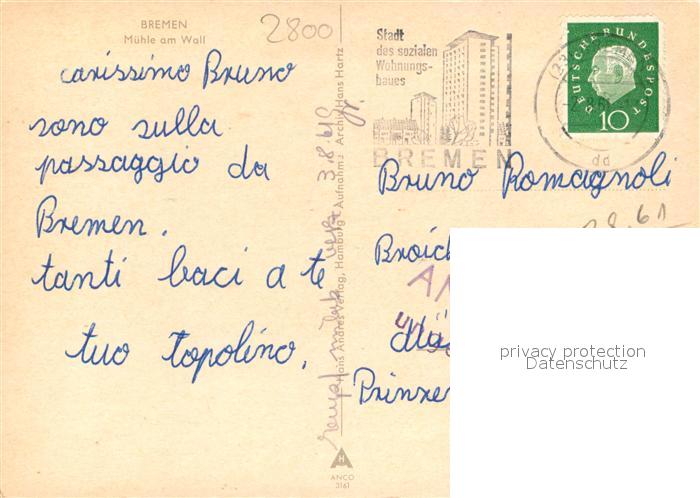 BREMEN
Mühle am Wall
2800
carissimo Bruno
sono sulla
passaggio da
Bremen.
tanti baci a te
tuo topolino.
Hans Andres Verlag, Hamburg · Aufnahme: Archiv Hans Hartz
3.8.61
ANCO
3161
Stadt
des sozialen
Wohnungs-
baues
BREMEN
DEUTSCHE BUNDESPOST
10
dd
Bruno Romagnoli
8.61
Broich
AN
Prinze
privacy protection
Datenschutz